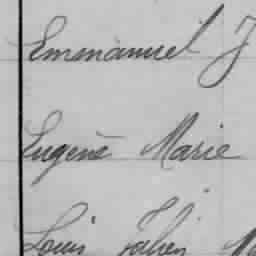 Emmanuel J
Eugène Marie
Louis Fabien